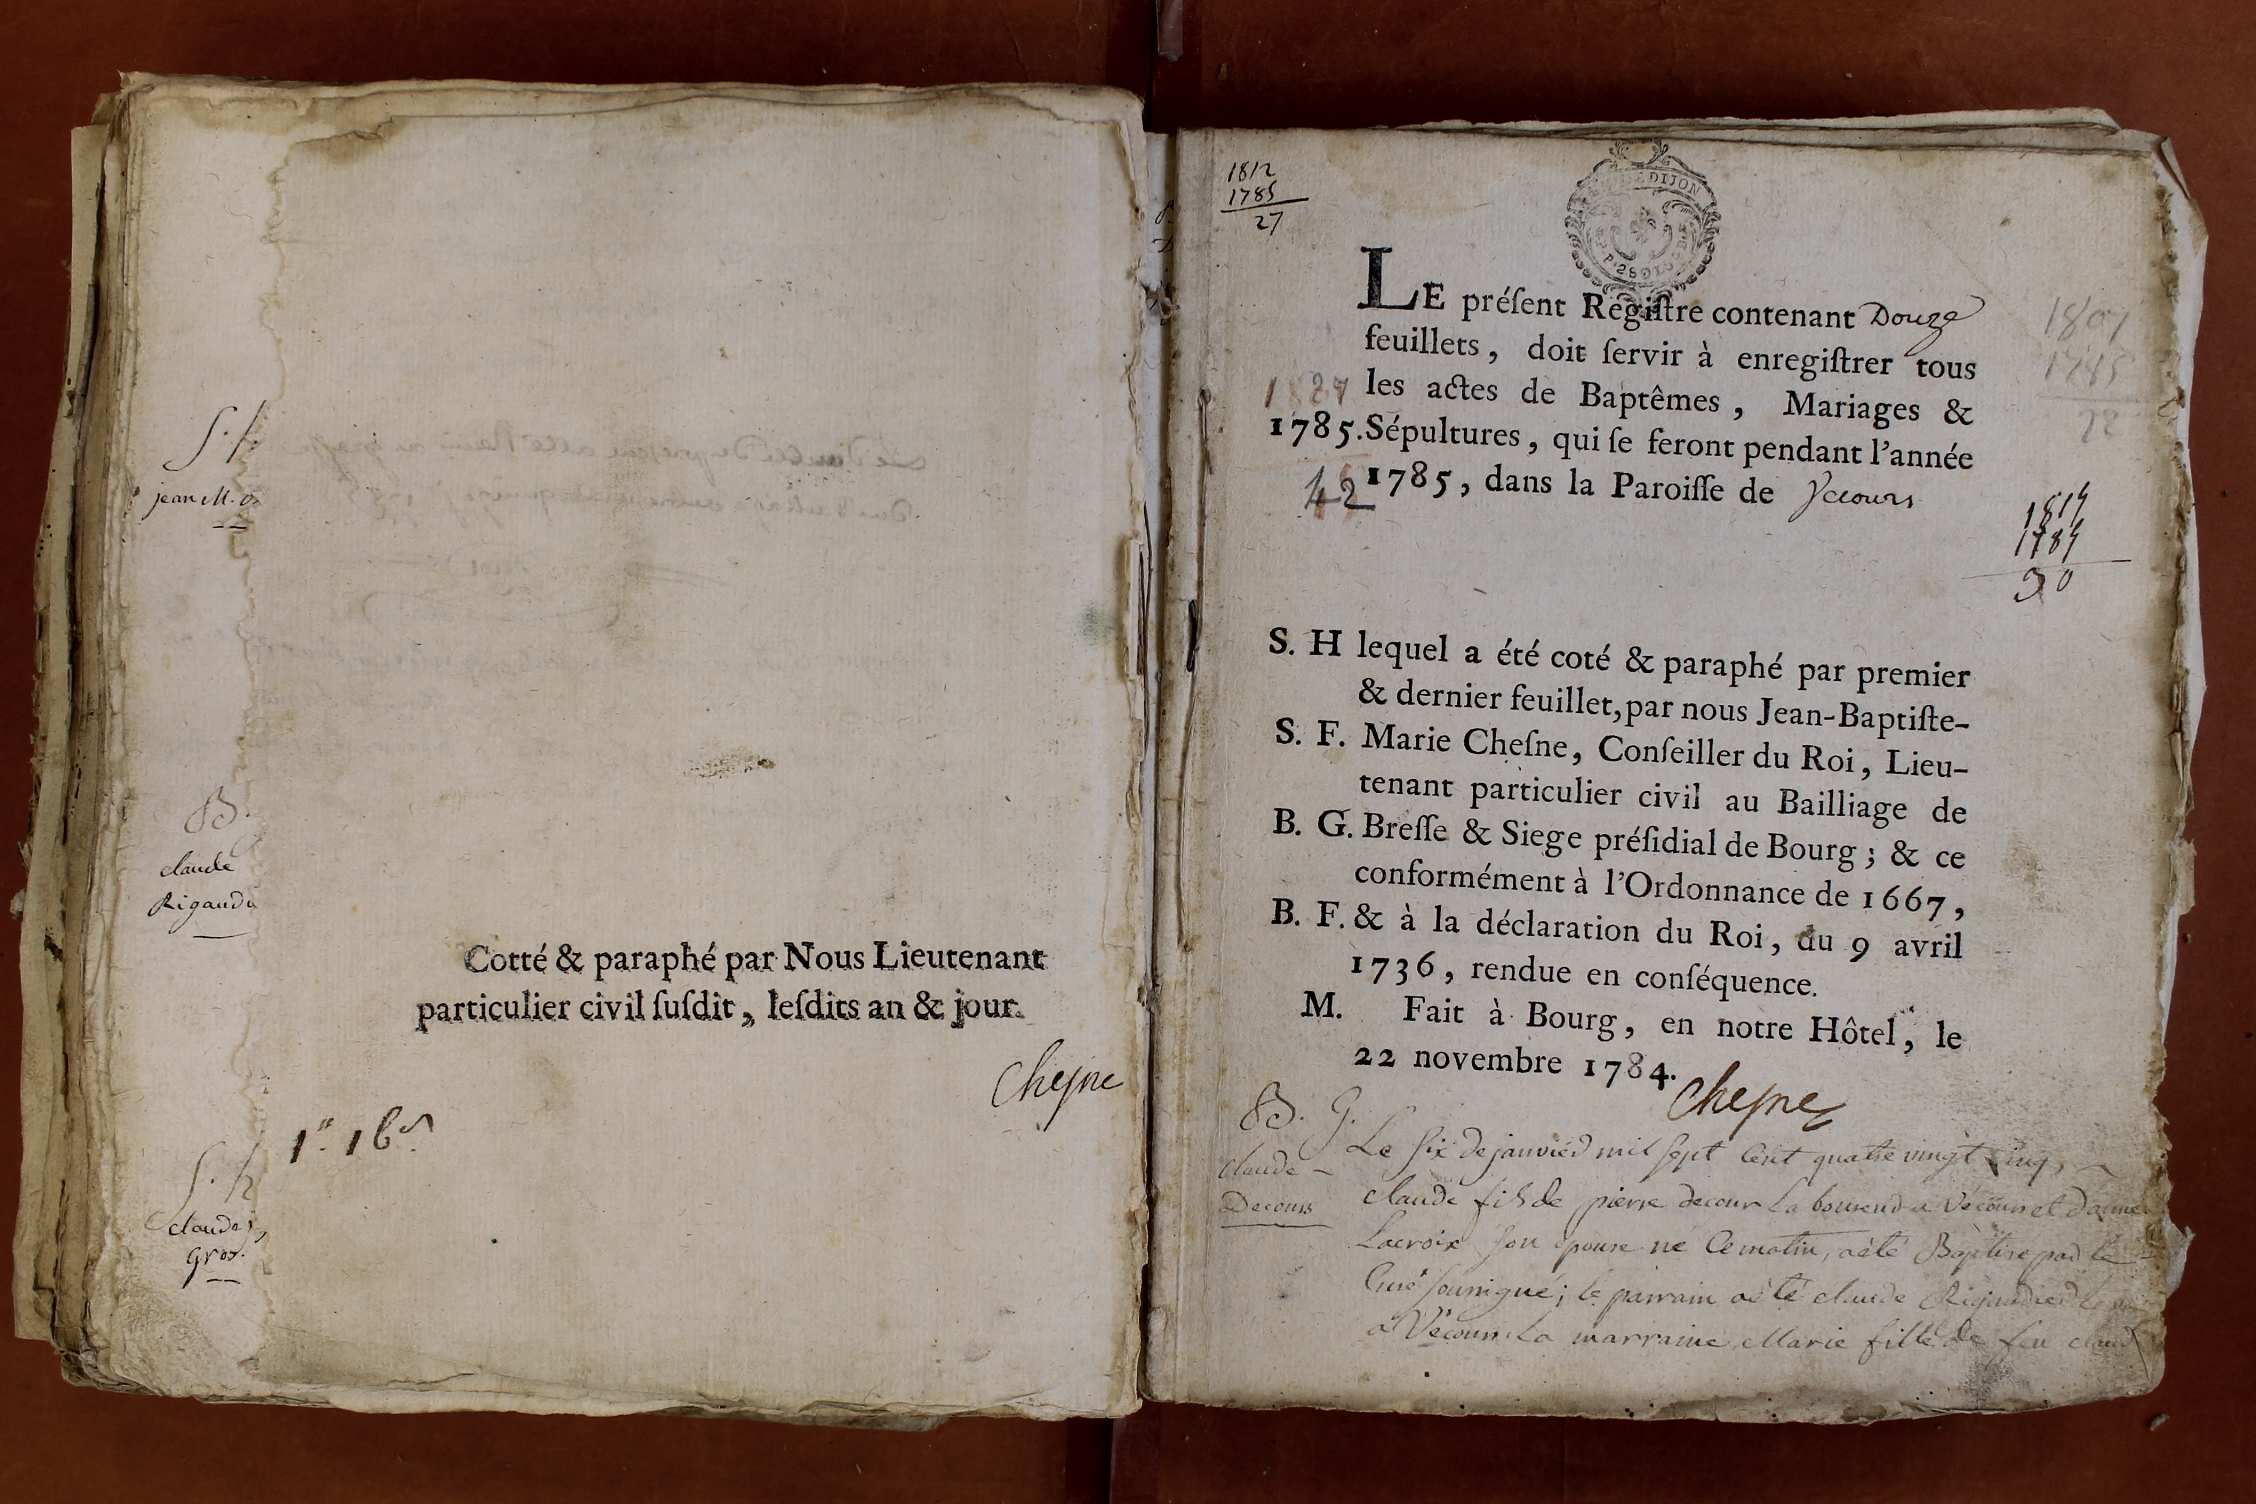 S. h
jean M.
B.
claude
Rigaudie
Cotté & paraphé par Nous Lieutenant
particulier civil ſuſdit, leſdits an & jour.
Cheſne
S. h
claude
Gros.
1812
1785
27
DIJON
LE préſent Regiſtre contenant Douze
feuillets, doit ſervir à enregiſtrer tous
les actes de Baptêmes, Mariages &
1785. Sépultures, qui ſe feront pendant l'année
1785, dans la Paroiſſe de Vecours
1827
42
1807
1785
22
1815
1785
30
S. H lequel a été coté & paraphé par premier
& dernier feuillet, par nous Jean-Baptiſte-
S. F. Marie Cheſne, Conſeiller du Roi, Lieu-
tenant particulier civil au Bailliage de
B. G. Breſſe & Siege préſidial de Bourg; & ce
conformément à l'Ordonnance de 1667,
B. F. & à la déclaration du Roi, du 9 avril
1736, rendue en conſéquence.
M. Fait à Bourg, en notre Hôtel, le
22 novembre 1784.
Cheſne
B. G.
claude
Decours
Le six de janvier mil sept cent quatre vingt cinq,
claude fils de pierre decour laboureur a Vécours et d'anne
Lacroix son epouse né ce matin, a été Baptisé par le
Curé soussigné; le parrain a été claude Rigaudier
a Vécours la marraine Marie fille de feu claud